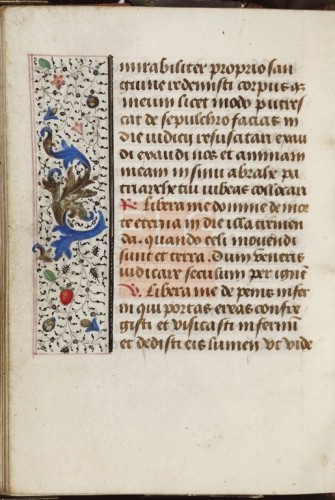 mirabiliter proprio san
guine redemisti corpus q
meum licet modo putres
cat de sepulchro facias in
die iudicii resuscitari exau
di exaudi nos et animam
meam in sinu abrahe pa
triarche tui iubeas collocari
R Libera me domine de mor
te eterna in die illa tremen
da. quando celi movendi
sunt et terra. Dum veneris
iudicare seculum per igne
V Libera me de penis infer
ni qui portas ereas confre
gisti et visitasti infernu
et dedisti eis lumen vt vide